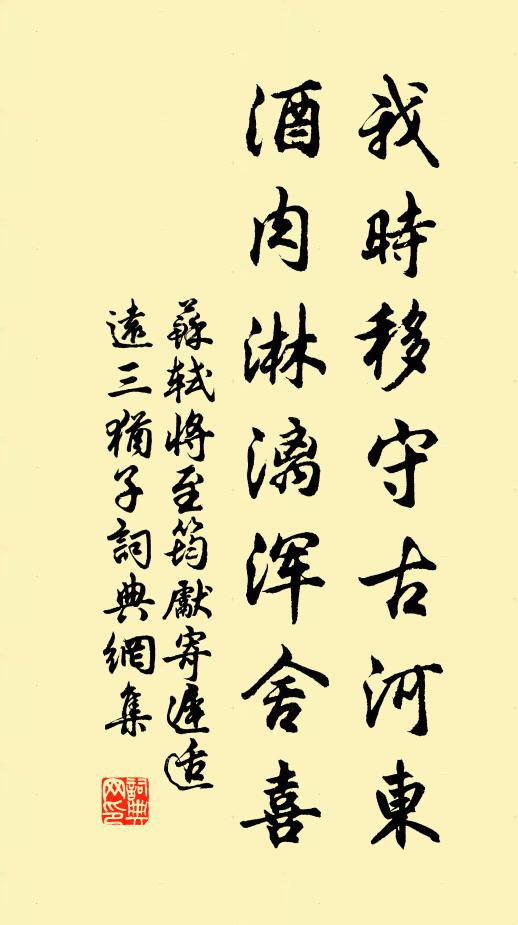 我時移守古河東
酒肉淋漓渾舍喜
蘇軾將至筠獻寄遲适
遠三猶子詞典網集
詞典網印